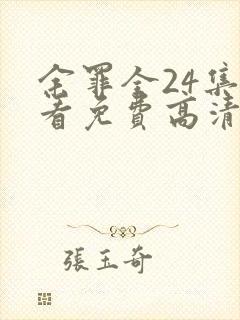 余罪全24集
看免費高清
張玉奇